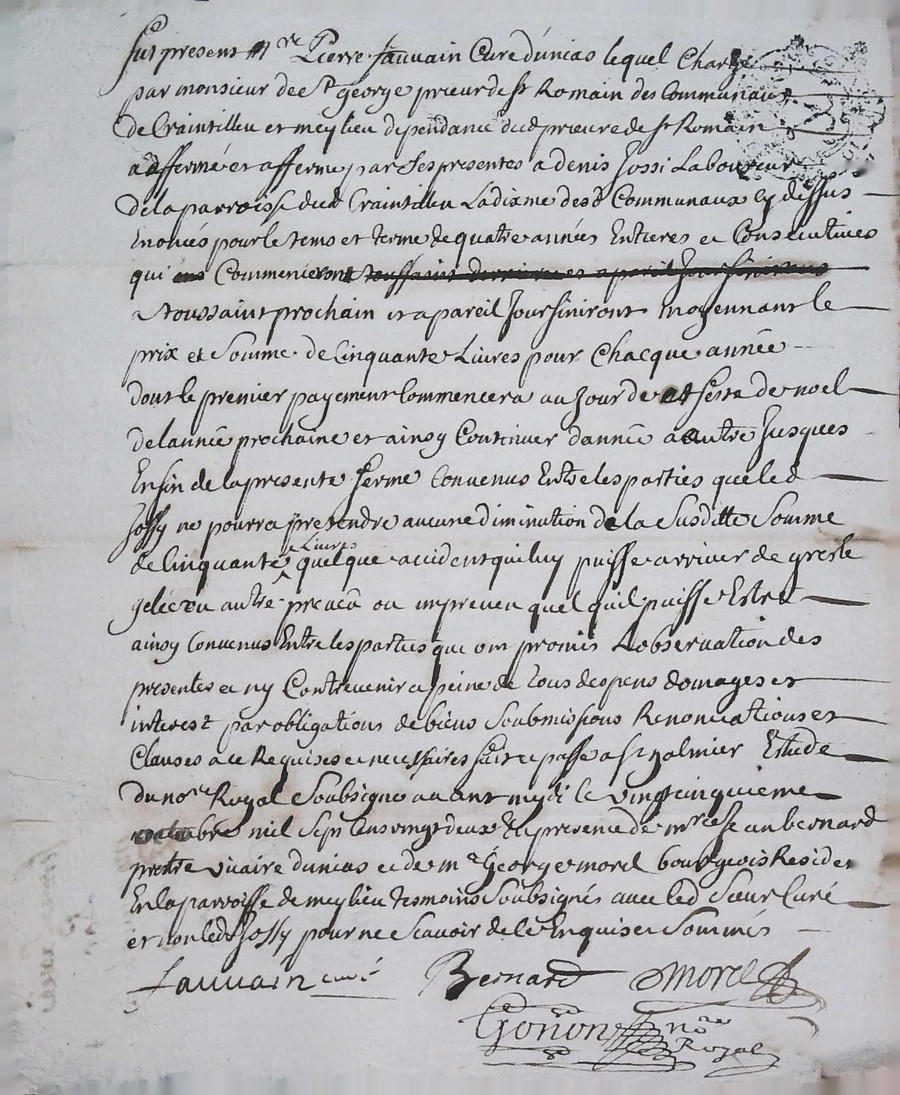 fut present Mre Pierre fauvain Curé dunias lequel Chargé
par monsieur de St george prieur de St Romain des Communaux
de Craintilleu et meylieu dependance dud prieuré de St Romain
a affermé et afferme par ses presentes a denis Jossi Laboureur
de la parroisse dud Craintilleu La dixme desd Communaux cy dessus
Enoncés pour le tems et terme de quatre années Entieres et Consecutives
qui Commenceront toussaint derniere et a pareil Jour finiront
a toussaint prochain et a pareil Jour finiront moyennant le
prix et Somme de Cinquante Livres pour Chacque année
dout le premier payement Commencera au Jour de feste de noel
de lannée prochaine et ainsy Continuer dannée a autre Jusques
Enfin de la presente ferme Convenus Entre les parties que led
Jossy ne pourra pretendre aucune diminution de la Susditte Somme
de Cinquante Livres quelque accident qui luy puisse arriver de gresle
gelée ou autre preveu ou impreveu quel quil puisse Estre
ainsy Convenus Entre les parties que ont promis Lobservation des
presentes et ny Contrevenir a peine de tous despens domages et
interest par obligations de biens Soubmissions Renonciations et
Clauses a ce Requises et necessaires fait et passé a St galmier Estude
du nore Royal Soubsigné avant mydi le vingtcinquieme
octobre mil Sept Cens vingt deux En presence de mre bernard
prettre vicaire dunias et de me George morel bourgeois Resident
En la parroisse de meylieu tesmoins Soubsignés avec led Sieur Curé
et non led Jossy pour ne Scavoir de ce Enquis et Sommés
fauvain curé Bernard Morel
Gonon nore
Royal